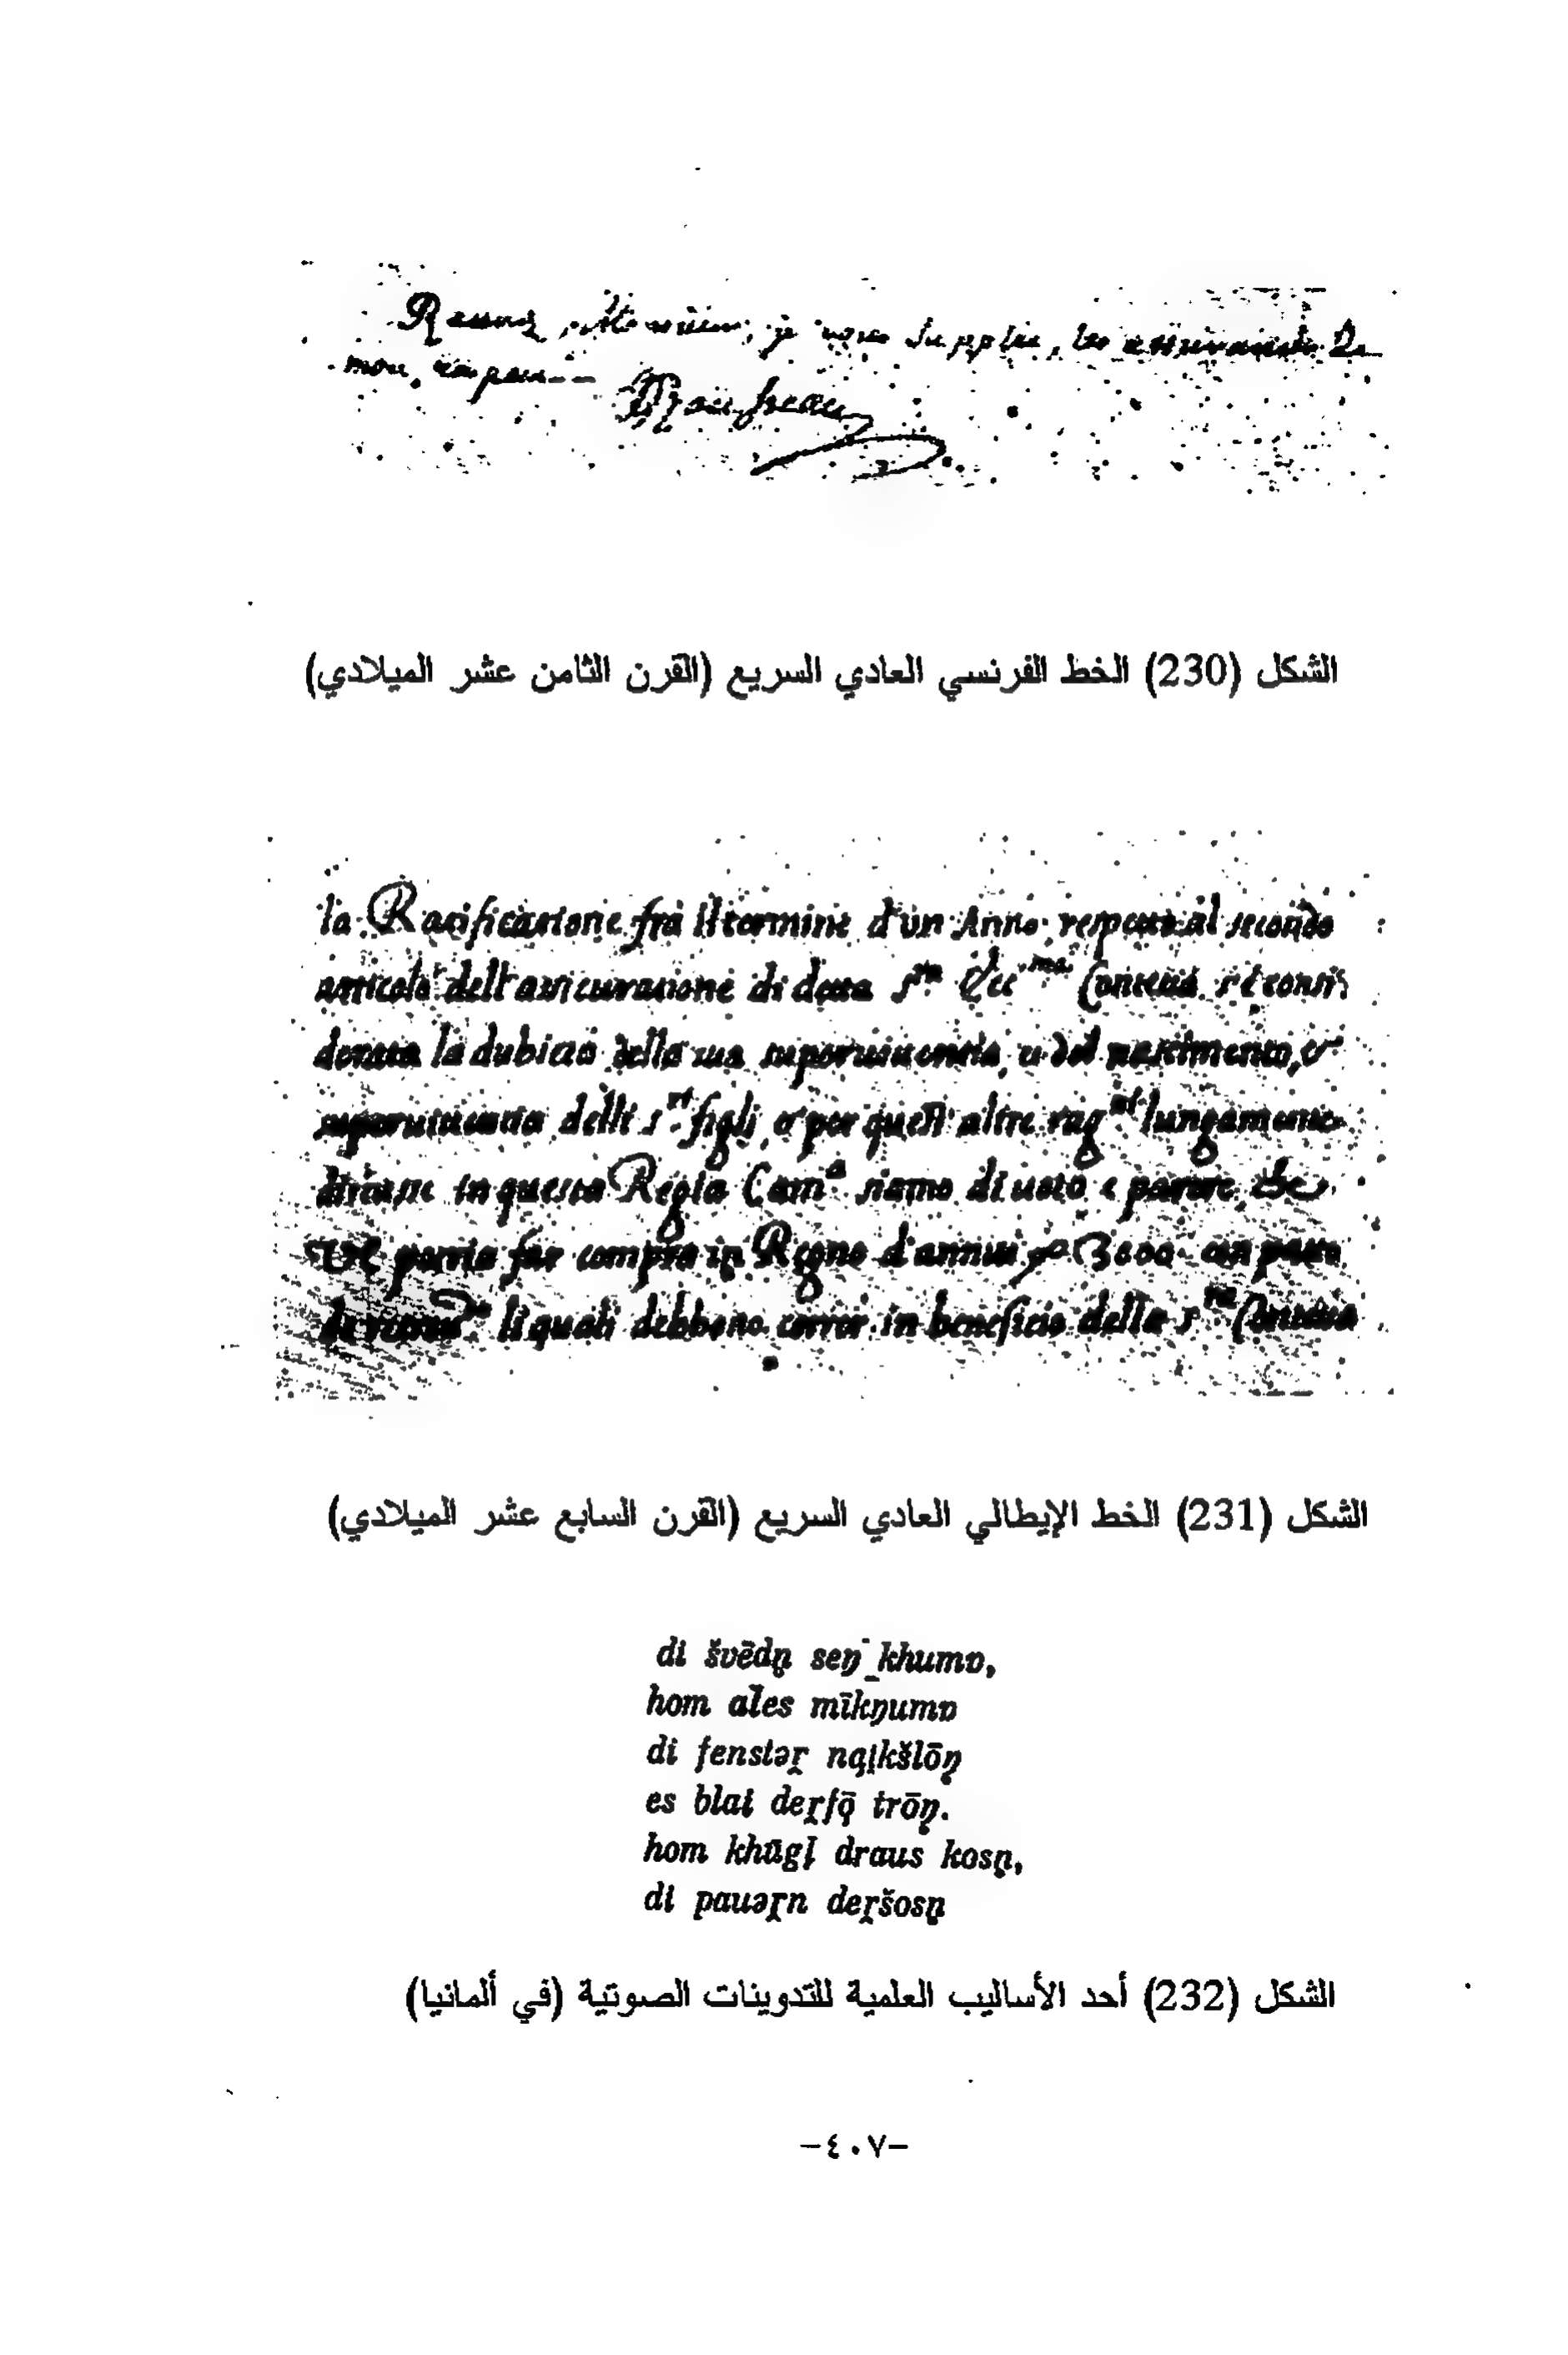 je vous supplie, les assurances de
mon
الشكل (230) الخط الفرنسي العادي السريع (القرن الثامن عشر الميلادي)
la Ratificatione frà il termine d'un Anno, al secondo
dell'assicuratione di detta S.ra Ecc.ma Contessa si consi
derata la dubietà della sua e del
delli s.ri figli, o per quest' altre rag.ni lungamente
in questa Regia Cam.a siamo di uoto e parere che
VE far compra in Regno d'annui 3000 con patto
li quali debbono correr in beneficio della S.ra Contessa
الشكل (231) الخط الإيطالي العادي السريع (القرن السابع عشر الميلادي)
di švēdn̥ seŋ khumɒ,
hom ales mīkŋumɒ
di fenstər̯ nąi̯kšlōŋ̥
es blai der̯fǭ trōŋ̥.
hom khūgl̥ draus kosn̥,
di pauər̯n der̯šosn̥
الشكل (232) أحد الأساليب العلمية للتدوينات الصوتية (في ألمانيا)
-٤٠٧-